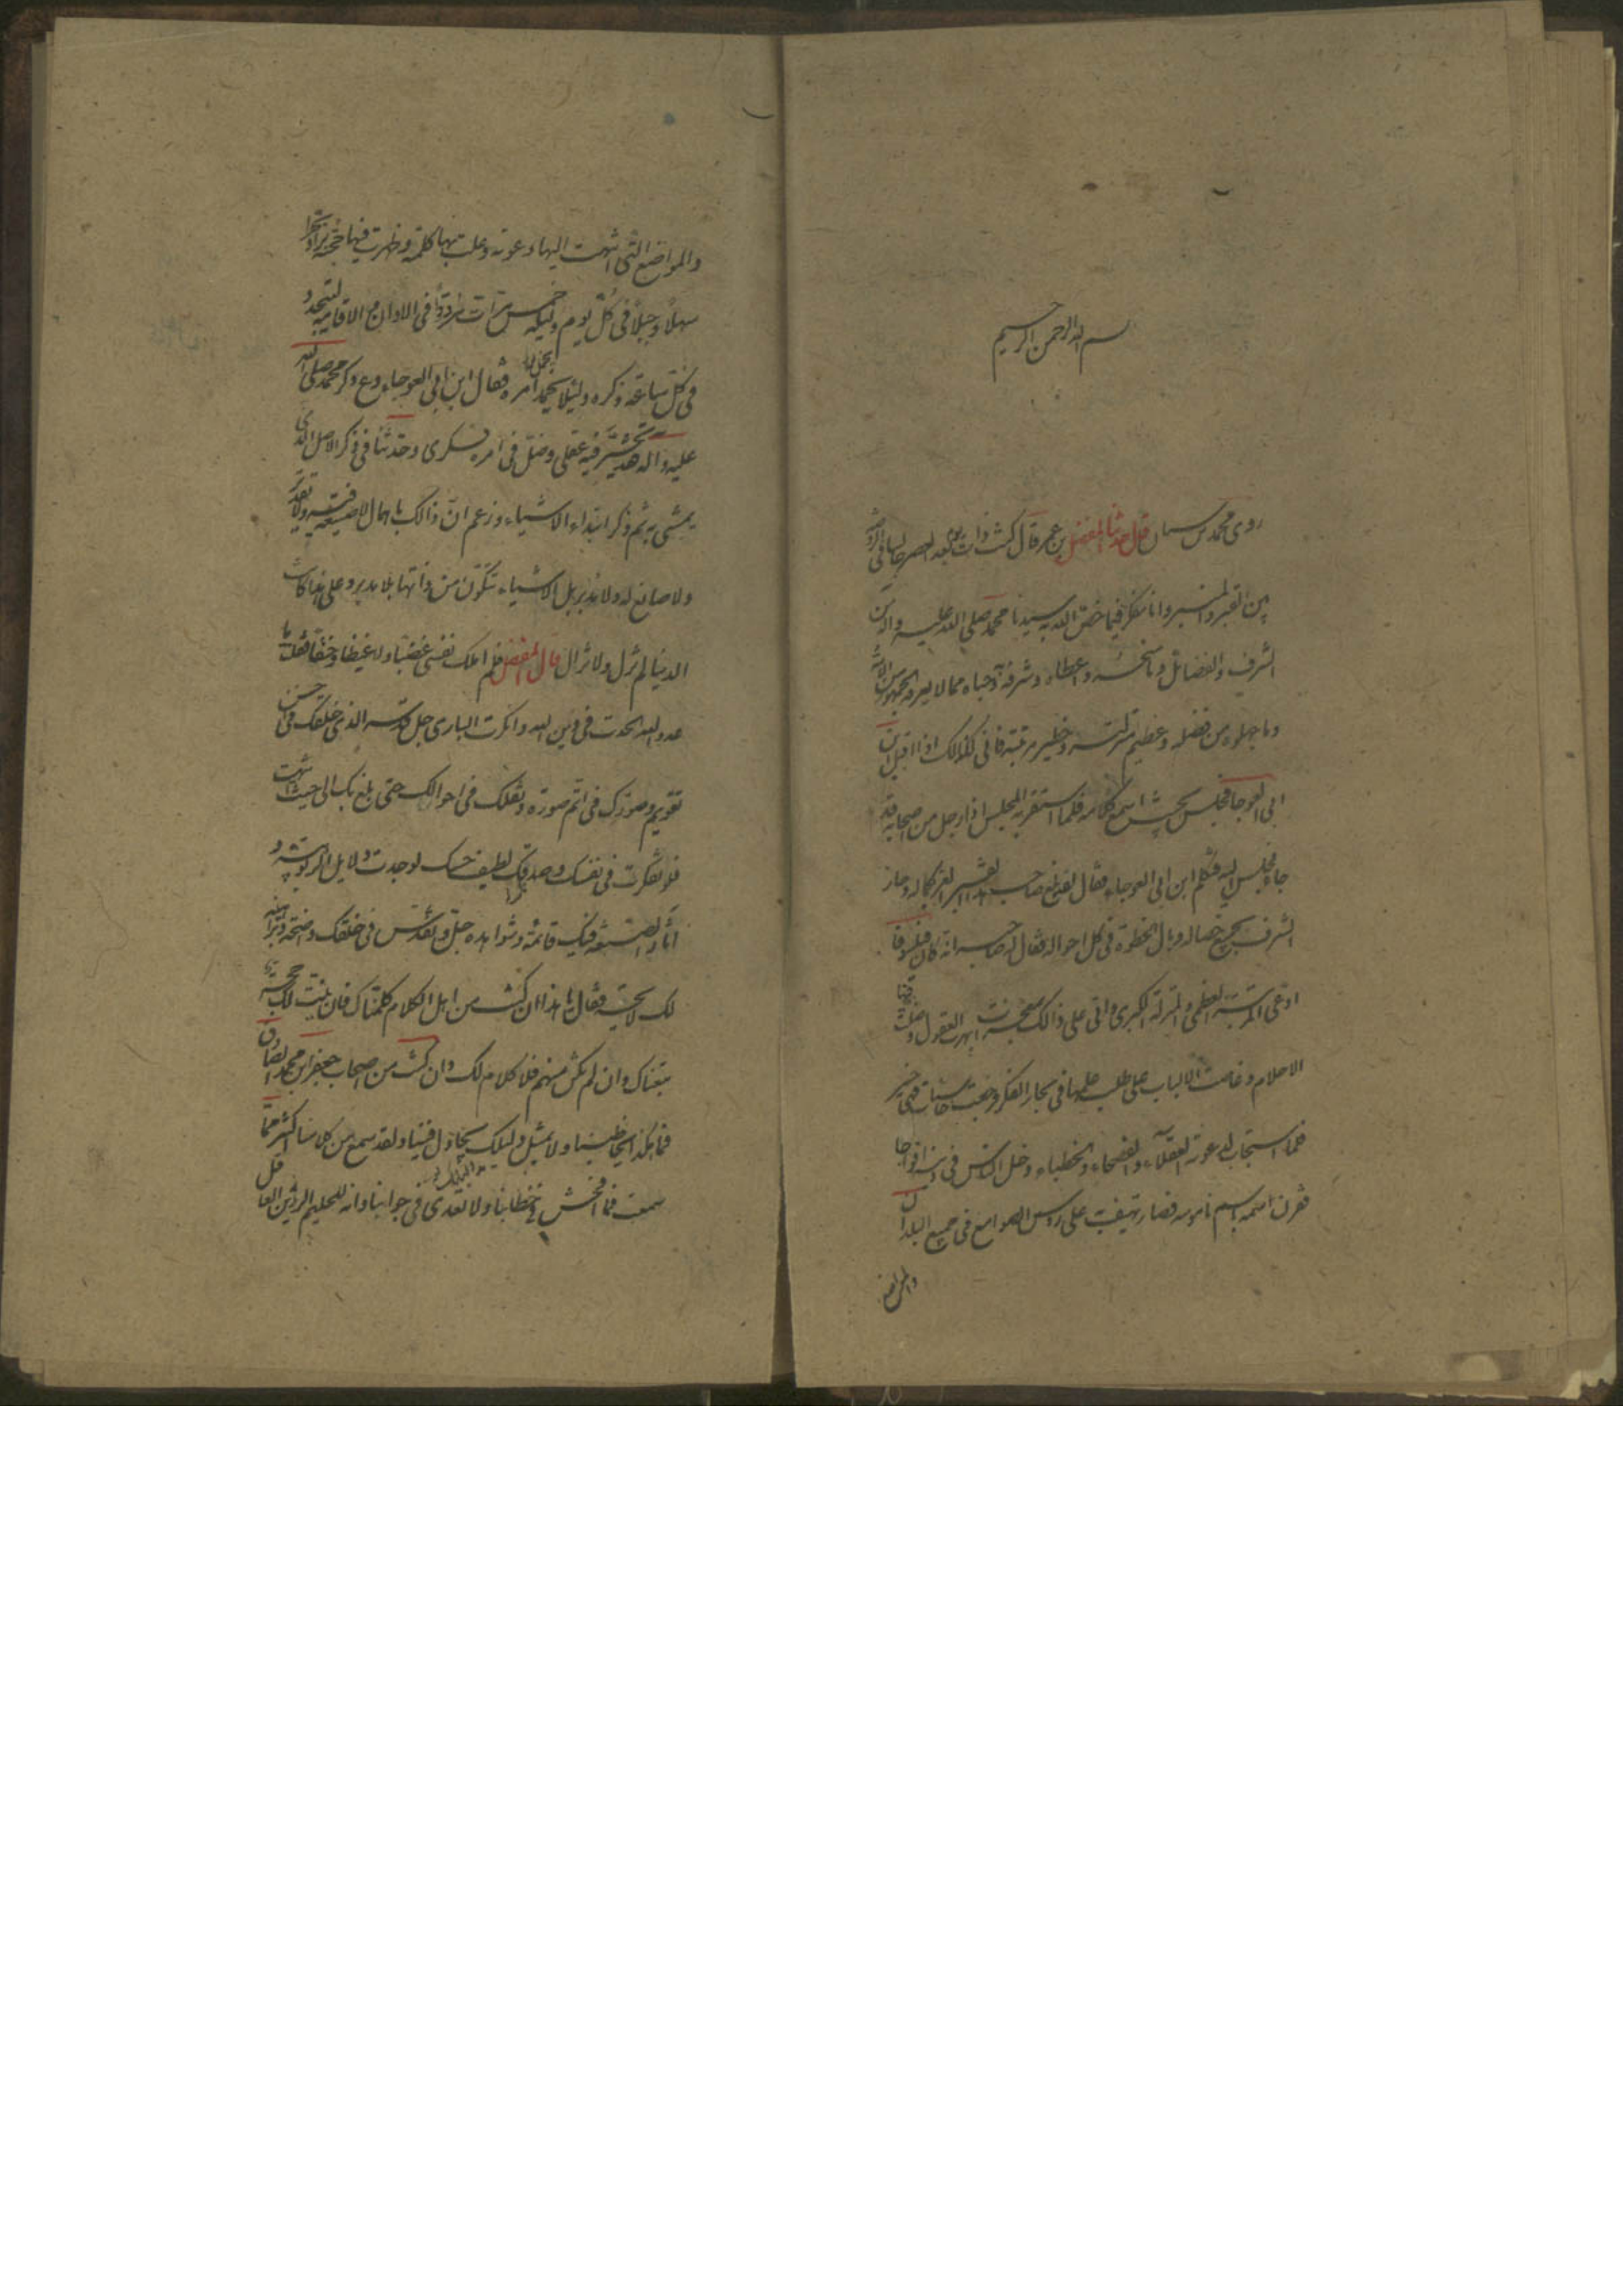 بسم الله الرحمن الرحيم
روى محمد بن سنان قال حدثنا المفضل بن عمر قال كنت ذات يوم بعد العصر جالسا في الروضة
بين القبر والمنبر وانا مفكر فيما خص الله به سيدنا محمد صلى الله عليه واله من
الشرف والفضائل وما منحه واعطاه وشرفه وحباه مما لا يعرفه الجمهور من الامة
وما جهلوه من فضله وعظيم منزلته وخطير مرتبته فاني لكذالك اذا اقبل ابن
ابي العوجا فجلس بحيث اسمع كلامه فلما استقر به المجلس اذا رجل من اصحابه قد
جاء فجلس اليه فتكلم ابن ابي العوجاء فقال لقد بلغ صاحب هذا القبر العز بكماله وحاز
الشرف بجميع خصاله ونال الحظوة في كل احواله فقال له صاحبه انه كان فيلسوفا
ادعى المرتبة العظمى والمنزلة الكبرى واتى على ذالك بمعجزات بهرت العقول وضلت فيها
الاحلام وغاصت الالباب على طلب علمها في بحار الفكر فرجعت خاسئات وهي حسير
فلما استجاب لدعوته العقلاء والفصحاء والخطباء دخل الناس في دينه افواجا
فقرن اسمه باسم ناموسه فصار يهتف به على رؤس الصوامع في جميع البلدان
والمواضع
والمواضع التي انتهت اليها دعوته وعلت بها كلمته وظهرت فيها حجته برا وبحرا
سهلا وجبلا في كل يوم وليلة خمس مرات مرددا في الاذان والاقامة ليتجدد
في كل ساعة ذكره ولئلا يخمل امره فقال ابن ابي العوجاء دع ذكر محمد صلى الله
عليه واله فقد تحير فيه عقلي وضل في امره فكري وحدثنا في ذكر الاصل الذي
يمشي به ثم ذكر ابتداء الاشياء وزعم ان ذالك باهمال لا صنعة فيه ولا تقدير
ولا صانع له ولا مدبر بل الاشياء تتكون من ذاتها بلا مدبر وعلى هذا كانت
الدنيا لم تزل ولا تزال قال المفضل فلم املك نفسي غضبا وغيظا وحنقا فقلت يا
عدو الله الحدت في دين الله وانكرت الباري جل قدسه الذي خلقك في احسن
تقويم وصورك في اتم صورة ونقلك في احوالك حتى بلغ بك الى حيث انتهيت
فلو تفكرت في نفسك وصدقك لطيف حسك لوجدت دلايل الربوبية و
اثار الصنعة فيك قائمة وشواهده جل وتقدس في خلقك واضحة وبراهينه
لك لائحة فقال يا هذا ان كنت من اهل الكلام كلمناك فان ثبتت لك حجة
تبعناك وان لم تكن منهم فلا كلام لك وان كنت من اصحاب جعفر ابن محمد الصادق
فما هكذا يخاطبنا ولا بمثل دليلك يجادل فينا ولقد سمع من كلامنا اكثر مما
سمعت فما افحش في خطابنا ولا تعدى في جوابنا وانه للحليم الرزين العاقل